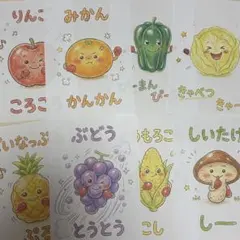 りんご
ころころ
みかん
かんかん
ーまん
ぴー
きゃべつ
きゃべ
いなっぷ
ぷる
ぶどう
とうとう
うもろこ
こし
しいたけ
しー